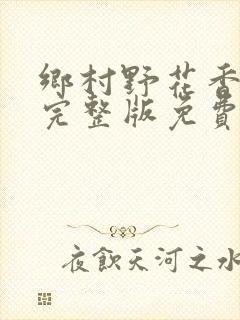 鄉村野花香
完整版免費
夜飲天河之水